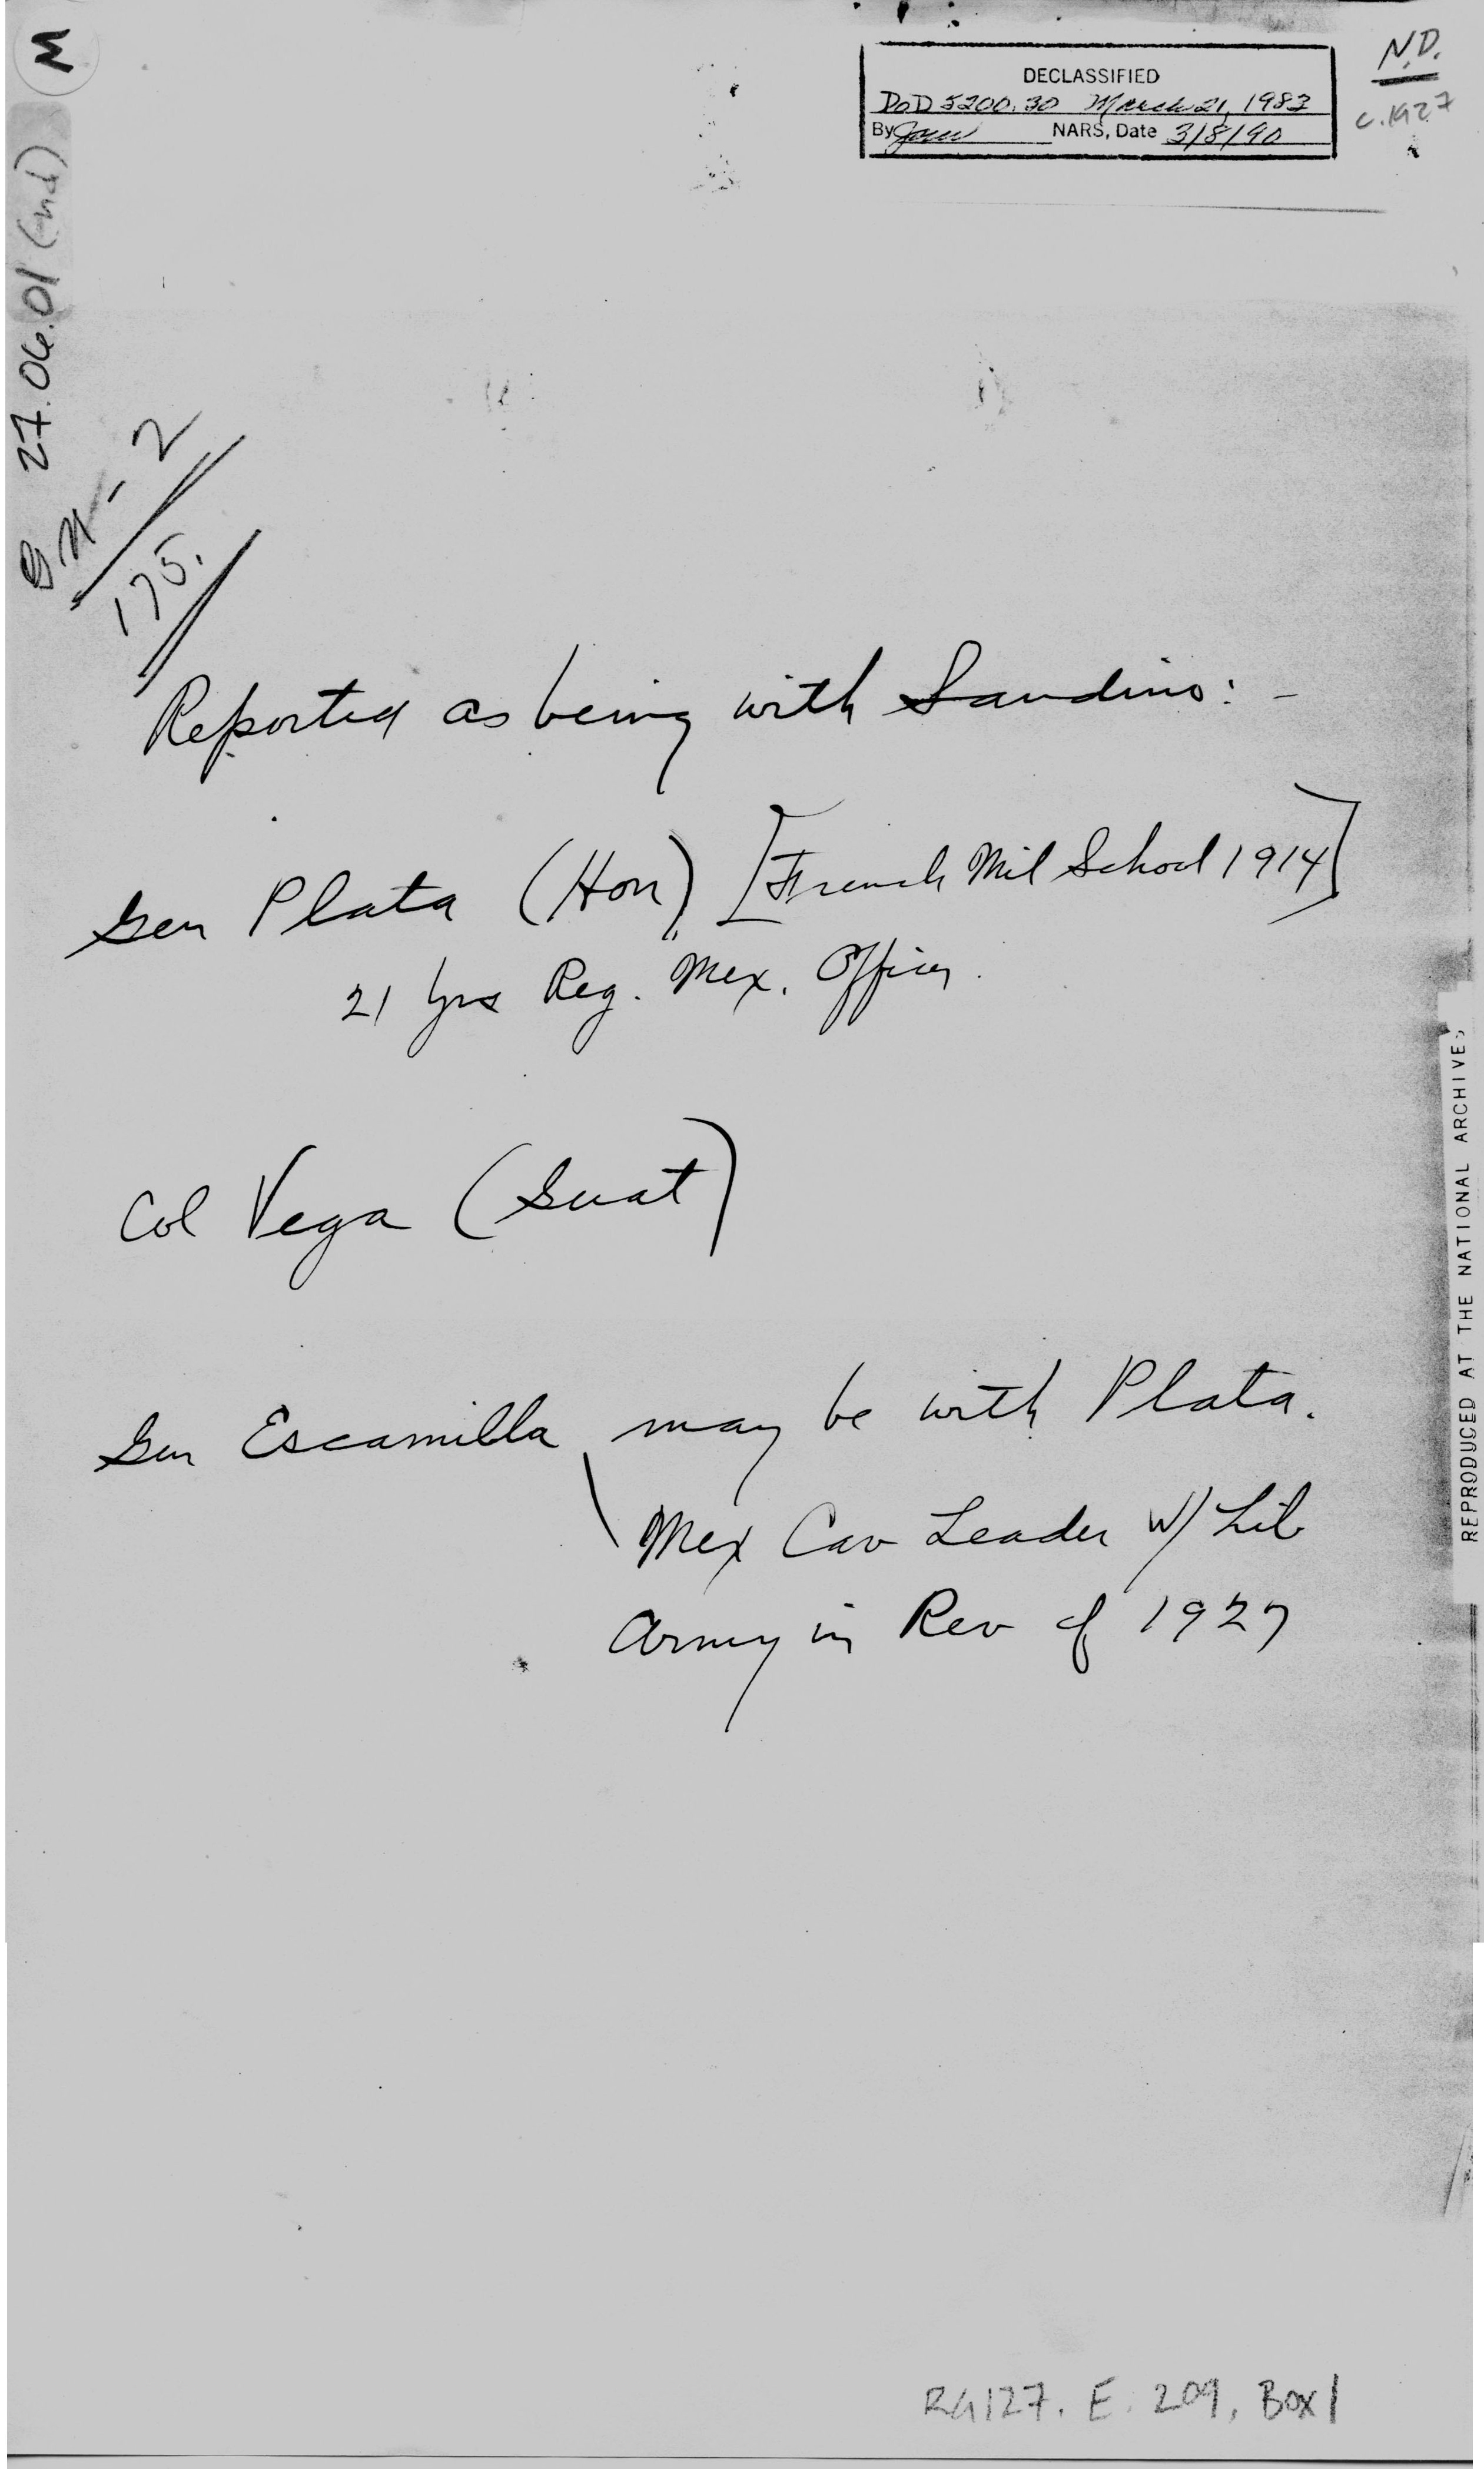 M
27.06.01 (nd)
DECLASSIFIED
DoD 5200.30 March 21, 1983
By NARS, Date 3/8/90
N.D.
c.1927
- 2
175.
Reported as being with Sandino: -
Gen Plata (Hon) [French Mil School 1914]
21 yrs Reg. Mex. Officer.
Col Vega (Guat)
Gen Escamilla may be with Plata.
Mex Cav Leader W/ Lib
Army in Rev of 1927
REPRODUCED AT THE NATIONAL ARCHIVES
RG127. E. 209, Box 1